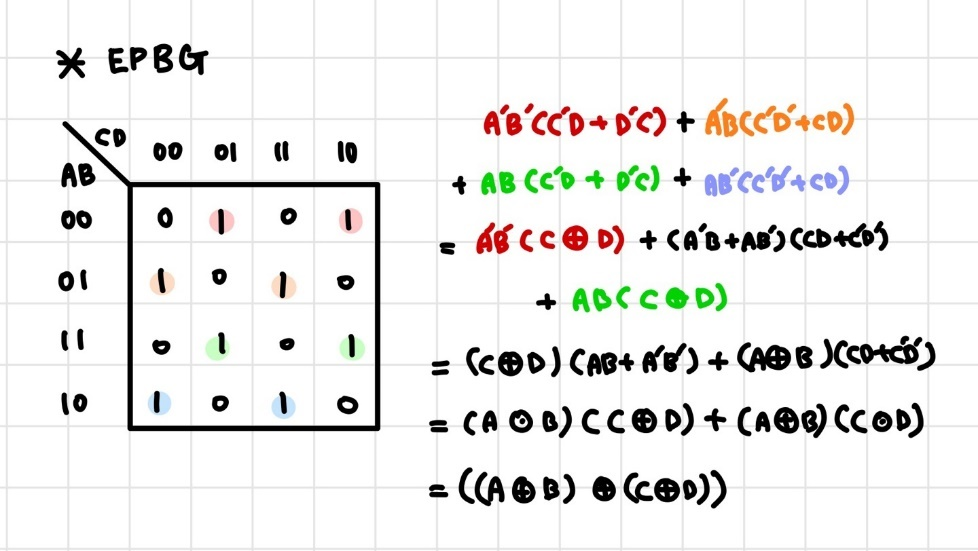 * EPBG
CD 00 01 11 10
AB
00 0 1 0 1
01 1 0 1 0
11 0 1 0 1
10 1 0 1 0
A'B'(C'D + D'C) + A'B(C'D' + CD)
+ AB(C'D + D'C) + AB'(C'D' + CD)
= A'B'(C ⊕ D) + (A'B + AB')(CD + C'D')
+ AB(C ⊕ D)
= (C ⊕ D)(AB + A'B') + (A ⊕ B)(CD + C'D')
= (A ⊙ B)(C ⊕ D) + (A ⊕ B)(C ⊙ D)
= ((A ⊕ B) ⊕ (C ⊕ D))